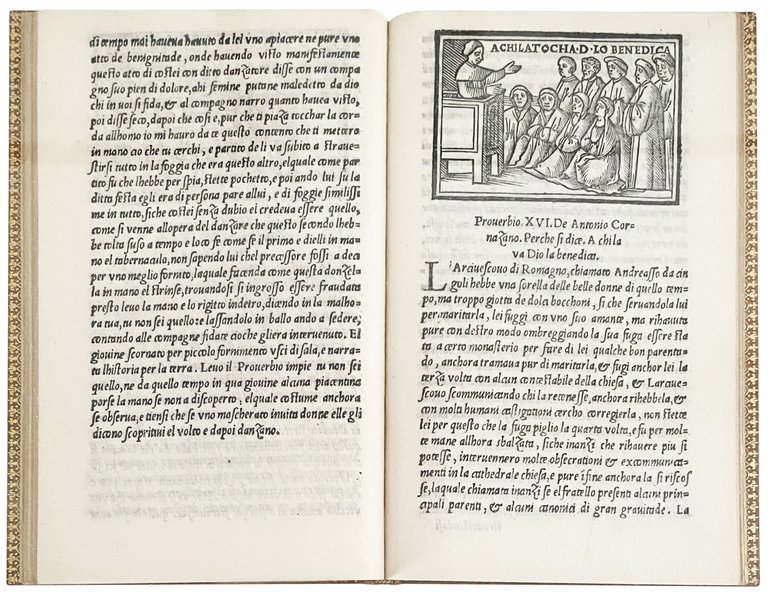 di tempo mai haueua hauuto da lei vno apiacere ne pure vno
atto de benignitade, onde hauendo visto manifestamente
questo atto di costei con ditto danzatore disse con un compa
gno suo pien di dolore, ahi femine putane maledetto da dio
chi in uoi si fida, & al compagno narro quanto hauea visto,
poi disse seco, dapoi che cosi e, pur che ti piaza tocchar la cor
da allhomo io mi hauro da te questo contento che ti mettero
in mano cio che tu cerchi, e partito de li va subito a straue
stirsi tutto in la foggia che era questo altro, elquale come par
tito fu che lhebbe per spia, stette pochetto, e poi ando lui su la
ditta festa egli era di persona pare allui, e di foggie similissi
me in tutto, siche costei senza dubio el credeua essere quello,
come si venne allopera del danzare che questo secondo lheb-
be tolta suso a tempo e loco fe come se il primo e dielli in ma
no el tabernaculo, non sapendo lui chel precessore fossi a deci
meno per uno meglio fornito, laquale facenda come questa donzel-
la in mano el strinse, trouandosi si ingrosso essere fraudata
presto leuo la mano e lo rigitto indetro, dicendo in la malho-
ra tua, tu non sei quello: e lassandolo in ballo ando a sedere,
contando alle compagne fidate cioche gliera interuenuto. El
giouine scornato per piccolo fornimento vsci di sala, e narra-
ta lhistoria per la terra. Leuo il Prouerbio impie tu non sei
quello, ne da quello tempo in qua giouine alcuna piacentina
porse la mano se non a discoperto, elquale costume anchora
se obserua, e tiensi che se vno mascherato inuita donne elle gli
dicono scopritiui el volto e dapoi danzano.
A CHI LA TOCHA · D · LO BENEDICA
Prouerbio XVI. De Antonio Cor-
nazano. Perche si dice. A chi la
va Dio la benedica.
L'Arciuescouo di Romagna, chiamato Andreasso da cin
goli hebbe vna sorella delle belle donne di quello tem-
po, ma troppo giotta de dola bocchoni, si che seruandola lui
per maritarla, lei fuggi con vno suo amante, ma rihauuta
pure con destro modo ombreggiando la sua fuga essere sta
ta a certo monasterio per fare di lei qualche bon parenta-
do, anchora tramaua pur di maritarla, & fugi anchor lei la
terza volta con alcun contestabile della chiesa, & Larciue-
scouo scommunicando chi la retenesse, anchora rihebbela, &
con molta humani castigationi cercho corregierla, non stette
lei per questo che la fuga piglio la quarta volta, e fu per mol-
te mane allhora sbalzata, siche inanzi che rihauere piu si
potesse, interuennero molte obsecrationi & excommunica-
menti in la cathedrale chiesa, e pure i fine anchora la si riscos
se, laquale chiamata inanzi se el fratello presenti alcuni prin-
cipali parenti, & alcuni canonici di gran grauitade. La